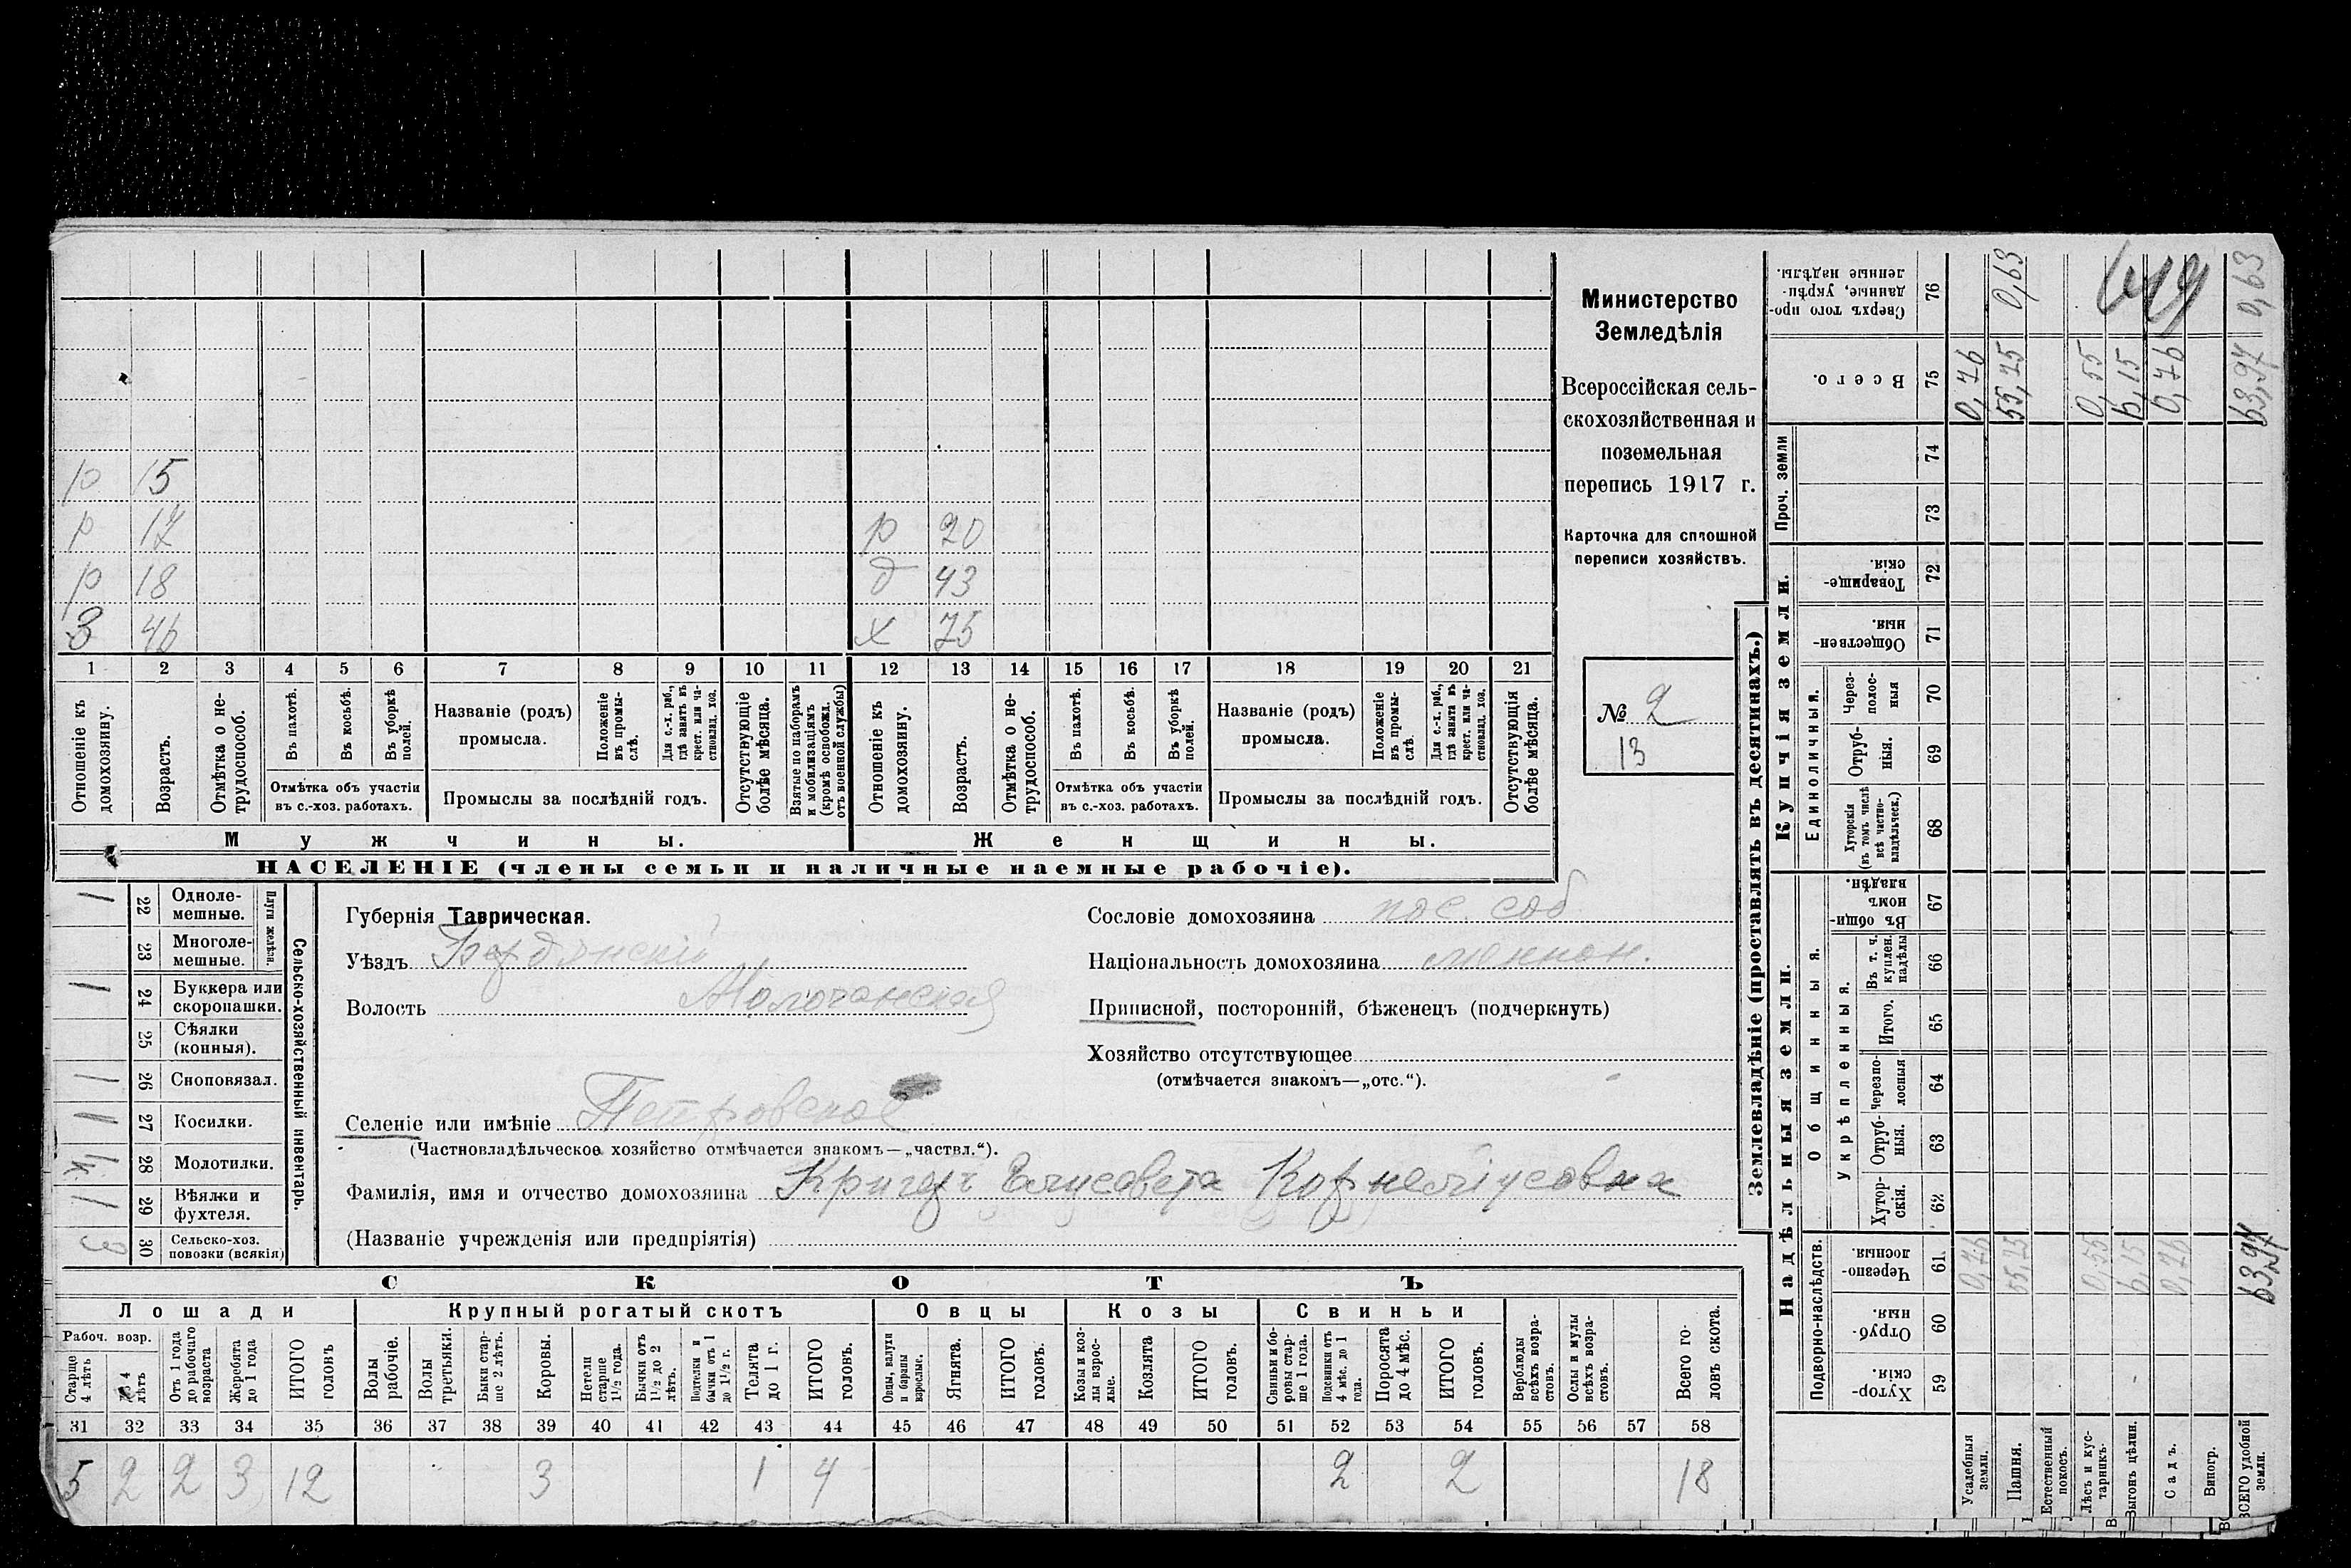 р 15
р 17 р 20
р 18 д 43
З 46 х 75
1 2 3 4 5 6 7 8 9 10 11 12 13 14 15 16 17 18 19 20 21
Отношеніе къ домохозяину.
Возрастъ.
Отмѣтка о не-трудоспособ.
Въ пахотѣ.
Въ косьбѣ.
Въ уборкѣ полей.
Отмѣтка объ участіи
въ с.-хоз. работахъ.
Названіе (родъ)
промысла.
Положеніе въ промы-слѣ.
Для с.-х. раб., гдѣ занятъ въ крест. или ча-стновлад. хоз.
Промыслы за послѣдній годъ.
Отсутствующіе болѣе мѣсяца.
Взятые по наборамъ и мобилизаціямъ (кромѣ освобожд. отъ военной службы)
Отношеніе къ домохозяину.
Возрастъ.
Отмѣтка о не-трудоспособ.
Въ пахотѣ.
Въ косьбѣ.
Въ уборкѣ полей.
Отмѣтка объ участіи
въ с.-хоз. работахъ.
Названіе (родъ)
промысла.
Положеніе въ промы-слѣ.
Для с.-х. раб., гдѣ занята въ крест. или ча-стновлад. хоз.
Промыслы за послѣдній годъ.
Отсутствующія болѣе мѣсяца.
Мужчины. Женщины.
НАСЕЛЕНІЕ (члены семьи и наличные наемные рабочіе).
Министерство
Земледѣлія
Всероссійская сель-
скохозяйственная и
поземельная
перепись 1917 г.
Карточка для сплошной
переписи хозяйствъ.
№ 2
13
Плуги желѣзн.
Сельско-хозяйственный инвентарь.
1 22 Одноле-мешные.
23 Многоле-мешные.
1 24 Буккера или скоропашки.
25 Сѣялки (конныя).
1 26 Сноповязал.
1 27 Косилки.
28 Молотилки.
1 29 Вѣялки и фухтеля.
3 30 Сельско-хоз. повозки (всякія)
Губернія Таврическая.
Уѣздъ Бердянскій
Волость Молочанская
Селеніе или имѣніе Петровское
(Частновладѣльческое хозяйство отмѣчается знакомъ—„частвл.“).
Фамилія, имя и отчество домохозяина Кригеръ Елисавета Корнеліусовна
(Названіе учрежденія или предпріятія)
Сословіе домохозяина пос. соб
Національность домохозяина меннон.
Приписной, посторонній, бѣженецъ (подчеркнуть)
Хозяйство отсутствующее
(отмѣчается знакомъ—„отс.“).
СКОТЪ
Лошади Крупный рогатый скотъ Овцы Козы Свиньи
Рабоч. возр.
Старше 4 лѣтъ
4 лѣтъ
Отъ 1 года до рабочаго возраста
Жеребята до 1 года
ИТОГО головъ
Волы рабочіе.
Волы третьяки.
Быки стар-ше 2 лѣтъ.
Коровы.
Нетели старше 1½ года.
Бычки отъ 1½ до 2 лѣтъ.
Подтелки и бычки отъ 1 до 1½ г.
Телята до 1 г.
ИТОГО головъ.
Овцы, валухи и бараны взрослые.
Ягнята.
ИТОГО головъ.
Козы и коз-лы взрос-лые.
Козлята
ИТОГО головъ.
Свиньи и бо-ровы стар-ше 1 года.
Подсвинки отъ 4 мѣс. до 1 года.
Поросята до 4 мѣс.
ИТОГО головъ.
Верблюды всѣхъ возра-стовъ.
Ослы и мулы всѣхъ возра-стовъ.
Всего го-ловъ скота.
31 32 33 34 35 36 37 38 39 40 41 42 43 44 45 46 47 48 49 50 51 52 53 54 55 56 57 58
5 2 2 3 12 3 1 4 2 2 18
Землевладѣніе (проставлять въ десятинахъ.)
Надѣльныя земли. Купчія земли. Проч. земли
Подворно-наслѣдств. Общинныя. Единоличныя.
Укрѣпленныя.
Сверхъ того про-данные, укрѣп-ленные надѣлы. 76 0,63 0,63
Всего. 75 0,76 55,75 0,55 6,15 0,76 63,97
74
73
Товарище-скія. 72
Обществен-ныя. 71
Через-полос-ныя 70
Отруб-ныя. 69
Хуторскія (въ томъ числѣ всѣ частно-владѣльческ.) 68
Въ общи-номъ владѣн. 67
Въ т. ч. куплен. надѣлы 66
Итого. 65
Черезпо-лосныя 64
Отруб-ныя. 63
Хутор-скія. 62
Черезпо-лосныя. 61 0,76 55,75 0,55 6,15 0,76 63,97
Отруб-ныя. 60
Хутор-скія. 59
Усадебныя земли.
Пашня.
Естественный покосъ.
Лѣсъ и кус-тарникъ.
Выгонъ цѣлин.
Садъ.
Виногр.
ВСЕГО удобной земли.